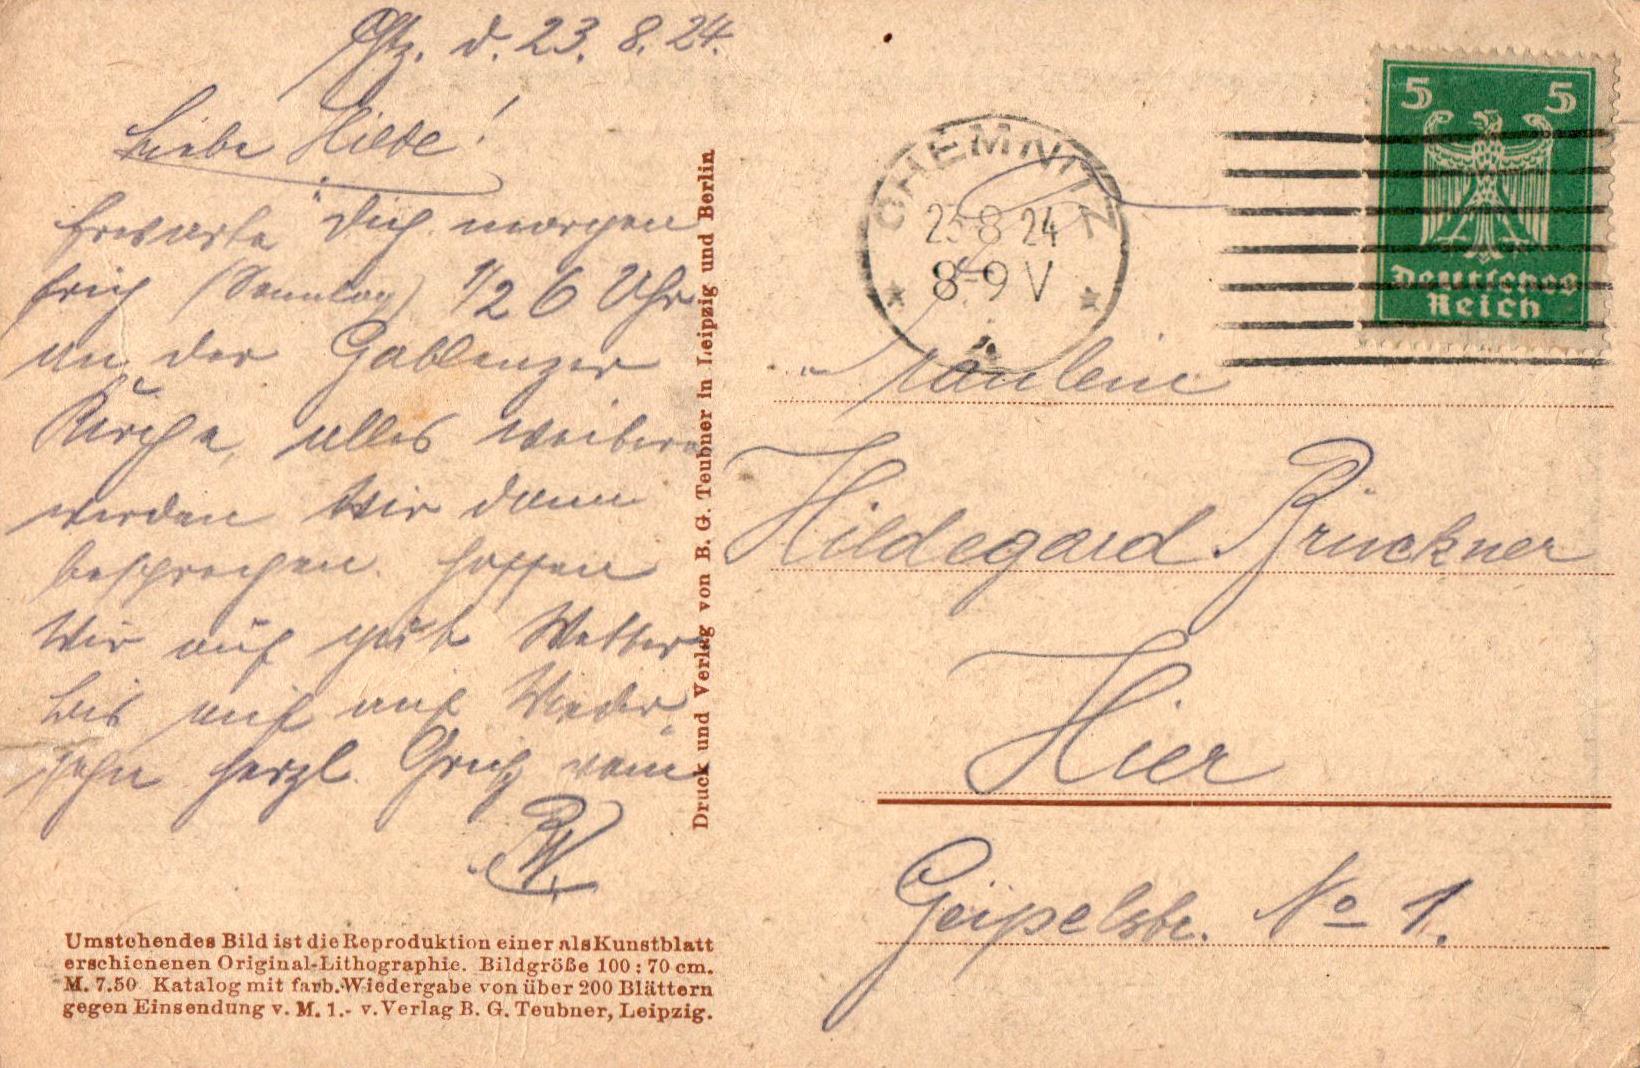 Chtz. d. 23. 8. 24.
Liebe Hilde!
Erwarte Dich morgen
früh (Sonntag) 1/2 6 Uhr
an der Gablenzer
Kirche, alles weitere
werden wir dann
besprechen. Hoffen
wir auf gut Wetter
bis auf Wieder-
sehn herzl. Gruß vom
BW.
Umstehendes Bild ist die Reproduktion einer als Kunstblatt
erschienenen Original-Lithographie. Bildgröße 100 : 70 cm.
M. 7.50 Katalog mit farb. Wiedergabe von über 200 Blättern
gegen Einsendung v. M. 1.- v. Verlag B. G. Teubner, Leipzig.
Druck und Verlag von B. G. Teubner in Leipzig und Berlin
CHEMNITZ
23 8 24
8-9 V
5 5
Deutsches
Reich
Fräulein
Hildegard Brückner
Hier
Geipelstr. No 1.